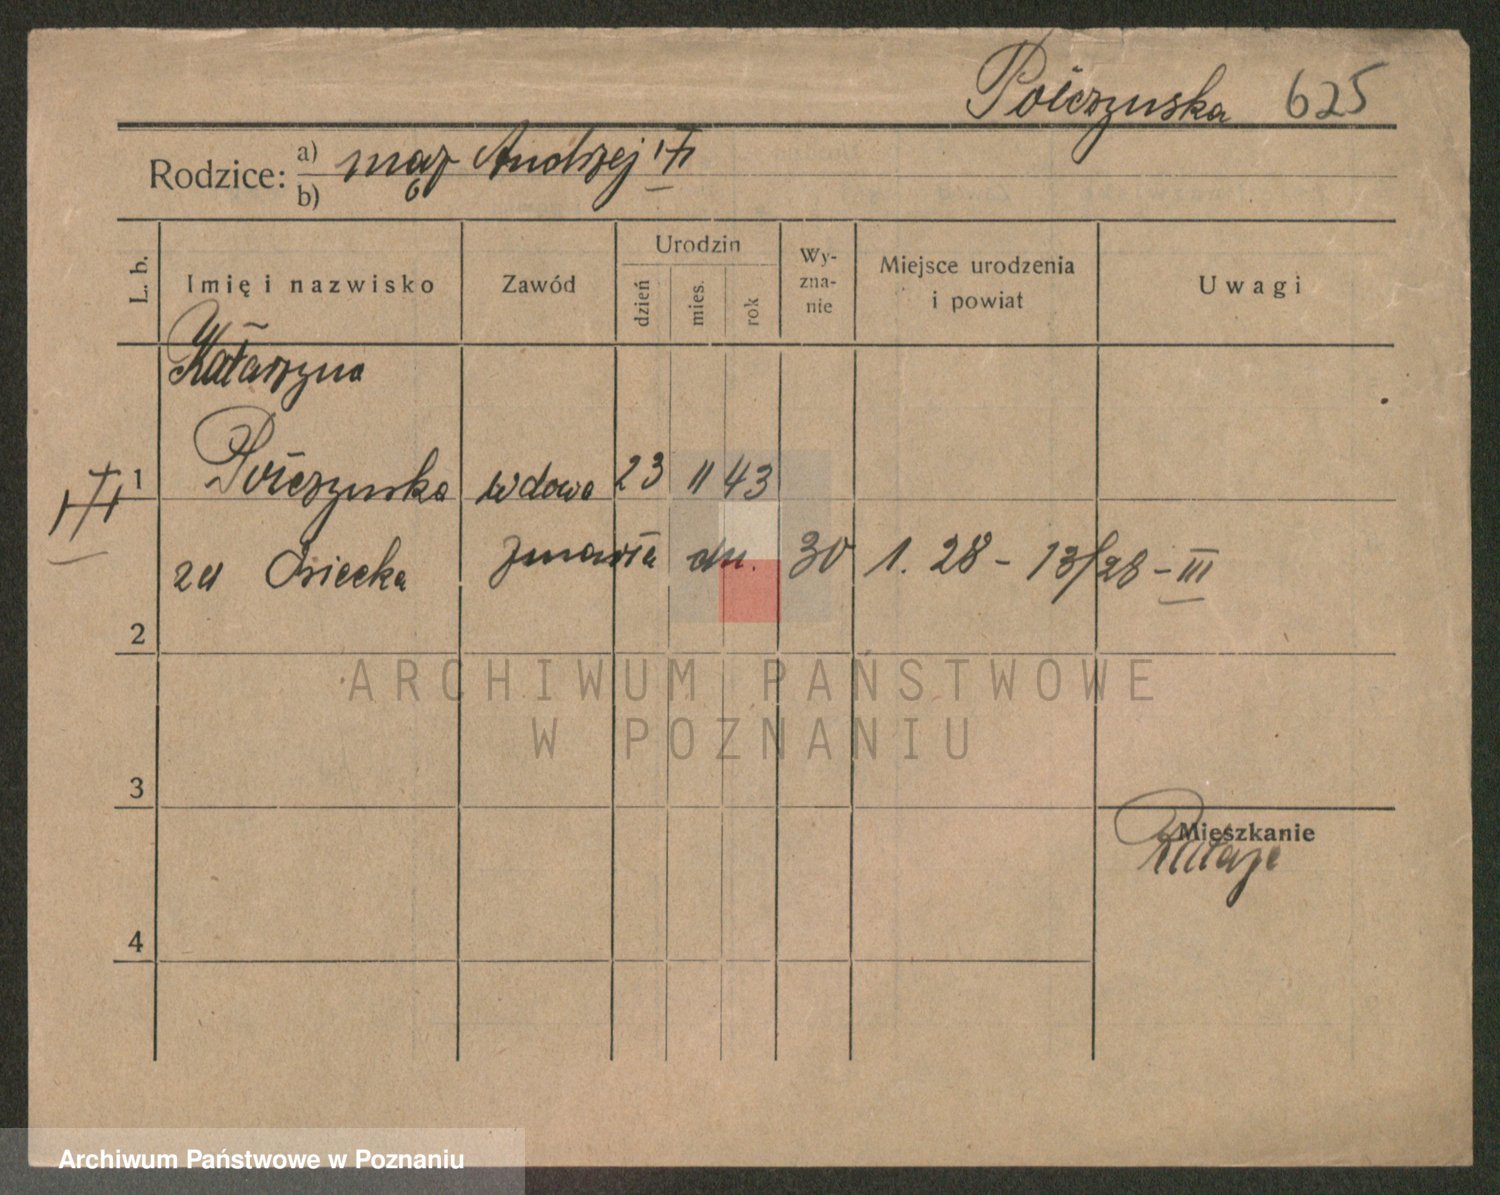 Połczyńska 625
Rodzice: a) mąż Andrzej
b)
L. b.
Imię i nazwisko
Zawód
Urodzin
dzień
mies.
rok
Wy-
zna-
nie
Miejsce urodzenia
i powiat
Uwagi
Katarzyna
1 wdowa 23 11 43
zd Osiecka zmarła dn. 30 1. 28 - 13/28 - III
2
ARCHIWUM PAŃSTWOWE
W POZNANIU
3
Mieszkanie
Rataje
4
Archiwum Państwowe w Poznaniu